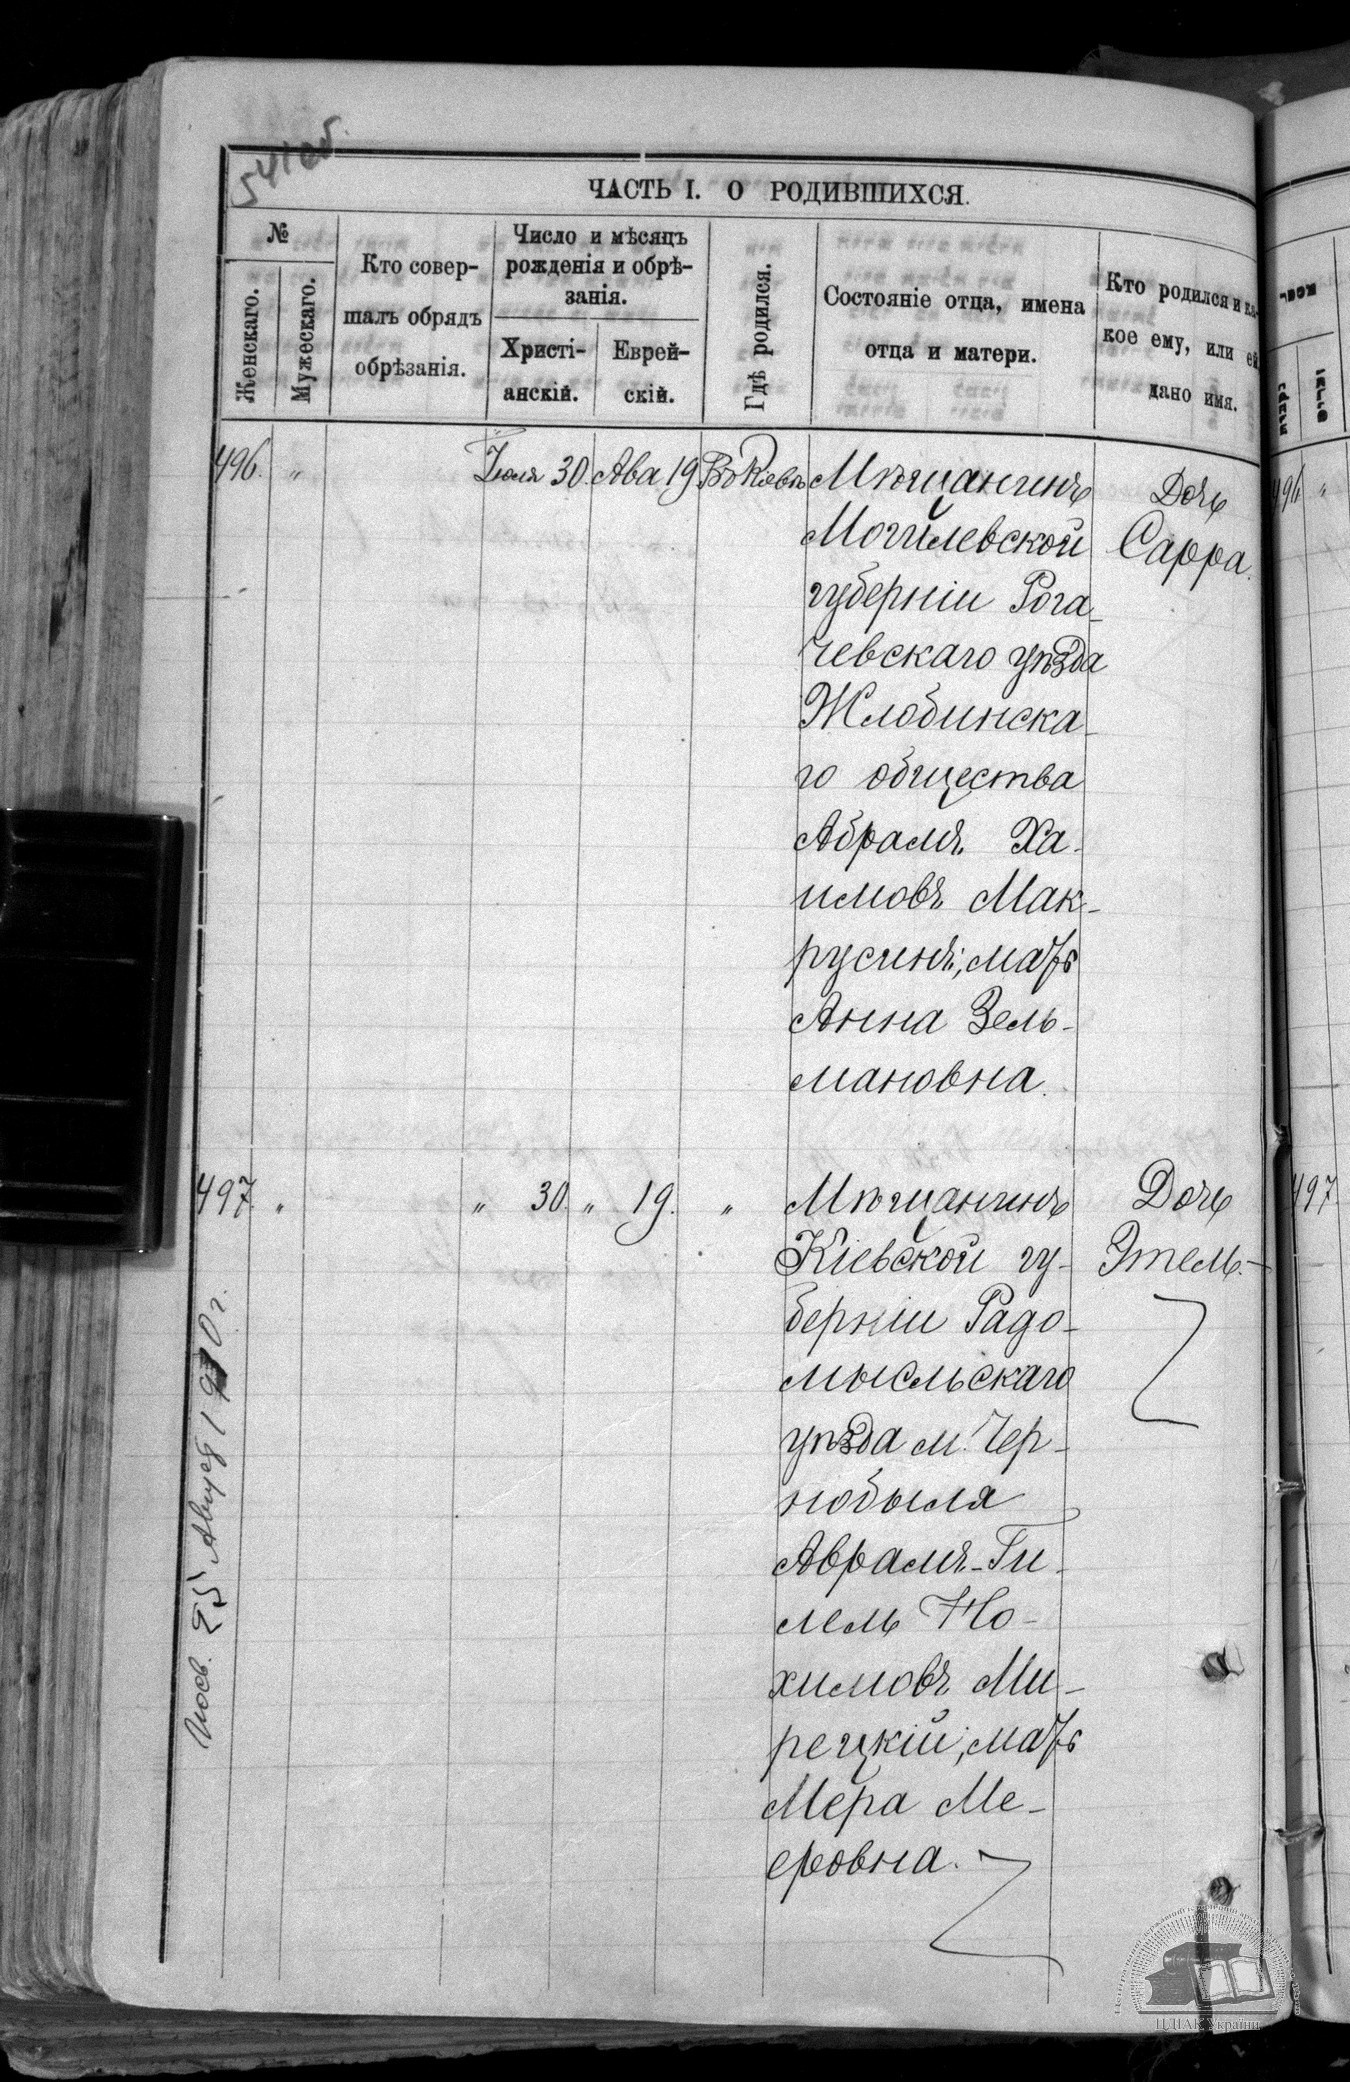 541об.
ЧАСТЬ I. О РОДИВШИХСЯ.
№
Женскаго.
Мужескаго.
Кто совер-
шалъ обрядъ
обрѣзанія.
Число и мѣсяцъ
рожденія и обрѣ-
занія.
Христі-
анскій.
Еврей-
скій.
Гдѣ родился.
Состояніе отца, имена
отца и матери.
Кто родился и ка-
кое ему, или ей
дано имя.
496. " Іюля 30. Ава 19 Въ Кіевѣ Мѣщанинъ Дочь
Могилевской Сарра.
губерніи Рога-
чевскаго уѣзда
Жлобинска-
го общества
Абрамъ Ха-
имовъ Мак-
русинъ, мать
Анна Зель-
мановна.
497. " " 30. " 19. " Мѣщанинъ Дочь
Кіевской гу- Этель.
берніи Радо-
мысльскаго
уѣзда м. Чер-
нобыля
Аврамъ-Ги-
лель Но-
химовъ Ми-
рецкій, мать
Мера Ме-
еровна.
25 Август 1910 г.
496 "
497
ЦДІАК України